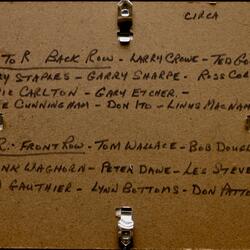 CIRCA
TO R BACK ROW - LARRY CROWE - TED
STAPLES - GARRY SHARPE - ROSS
CARLTON - GARY ETCHER. -
CUNNINGHAM - DON ITO - LINUS MACNAM
R: FRONT ROW - TOM WALLACE - BOB DOUG
WAGHORN - PETER DAWE - LES STEVE
GAUTHIER - LYNN BOTTOMS - DON PATTO